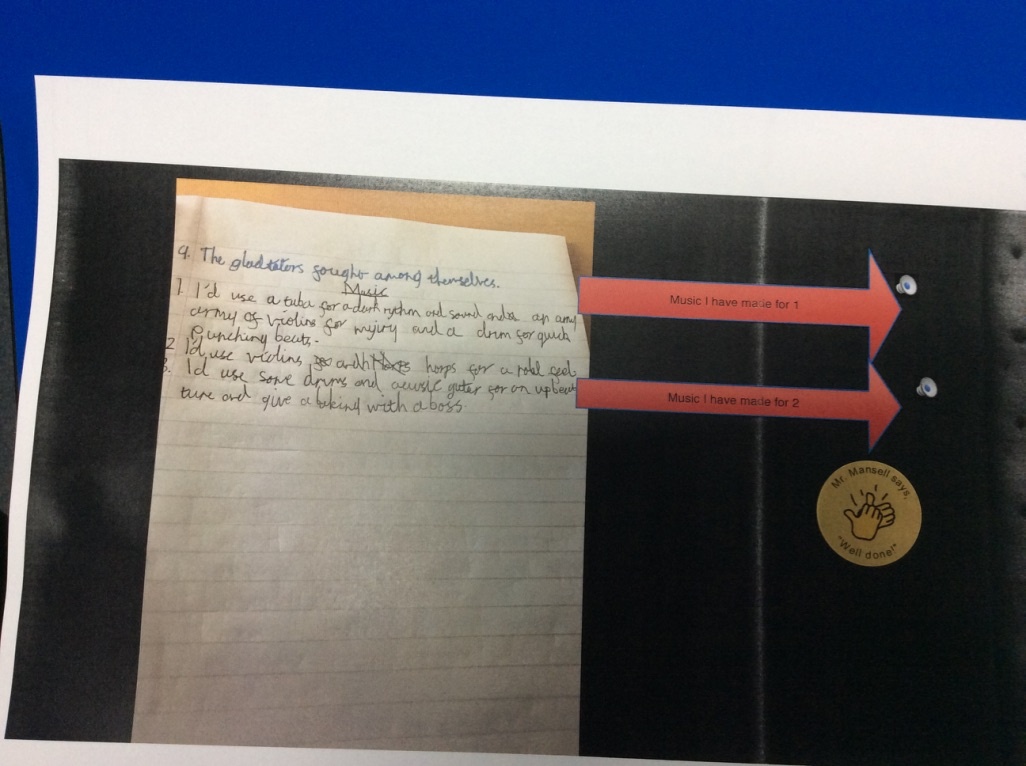 9. The gladiators fought among themselves.
Music
1. I'd use a tuba for a dark rythm and sound and an army
army of violins for injury and a drum for quick
Punching beats.
2. I'd use violins and harps for a royal feel.
3. I'd use some drums and acustic guter for an upbeat
tune and give a viking with a boss
Music I have made for 1
Music I have made for 2
Mr. Mansell says,
"Well done!"